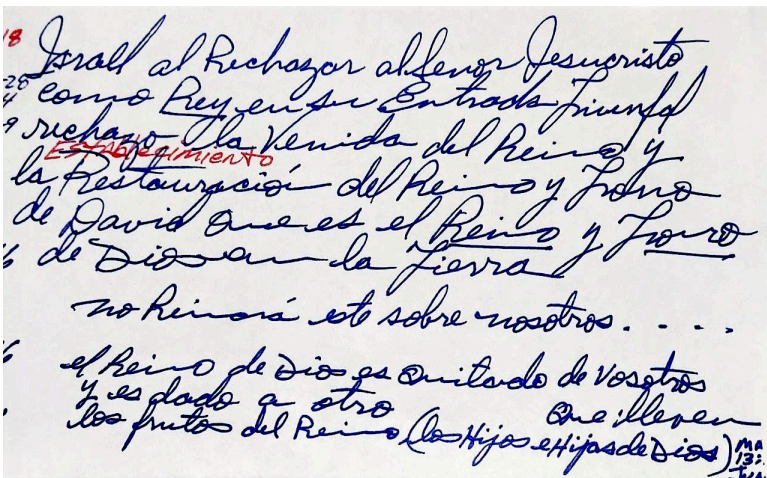 18
Israel al Rechazar al Senor Jesucristo
28 como Rey en su Entrada Triunfal
4
9 rechazo la Venida del Reino y
Establecimiento
la Restauración del Reino y Trono
de David que es el Reino y Trono
16 de Dios en la Tierra
no Reinará este sobre nosotros. . . . .
el Reino de Dios es quitado de vosotros
y es dado a otro que lleven
los frutos del Reino (los Hijos e Hijas de Dios) MA
13: